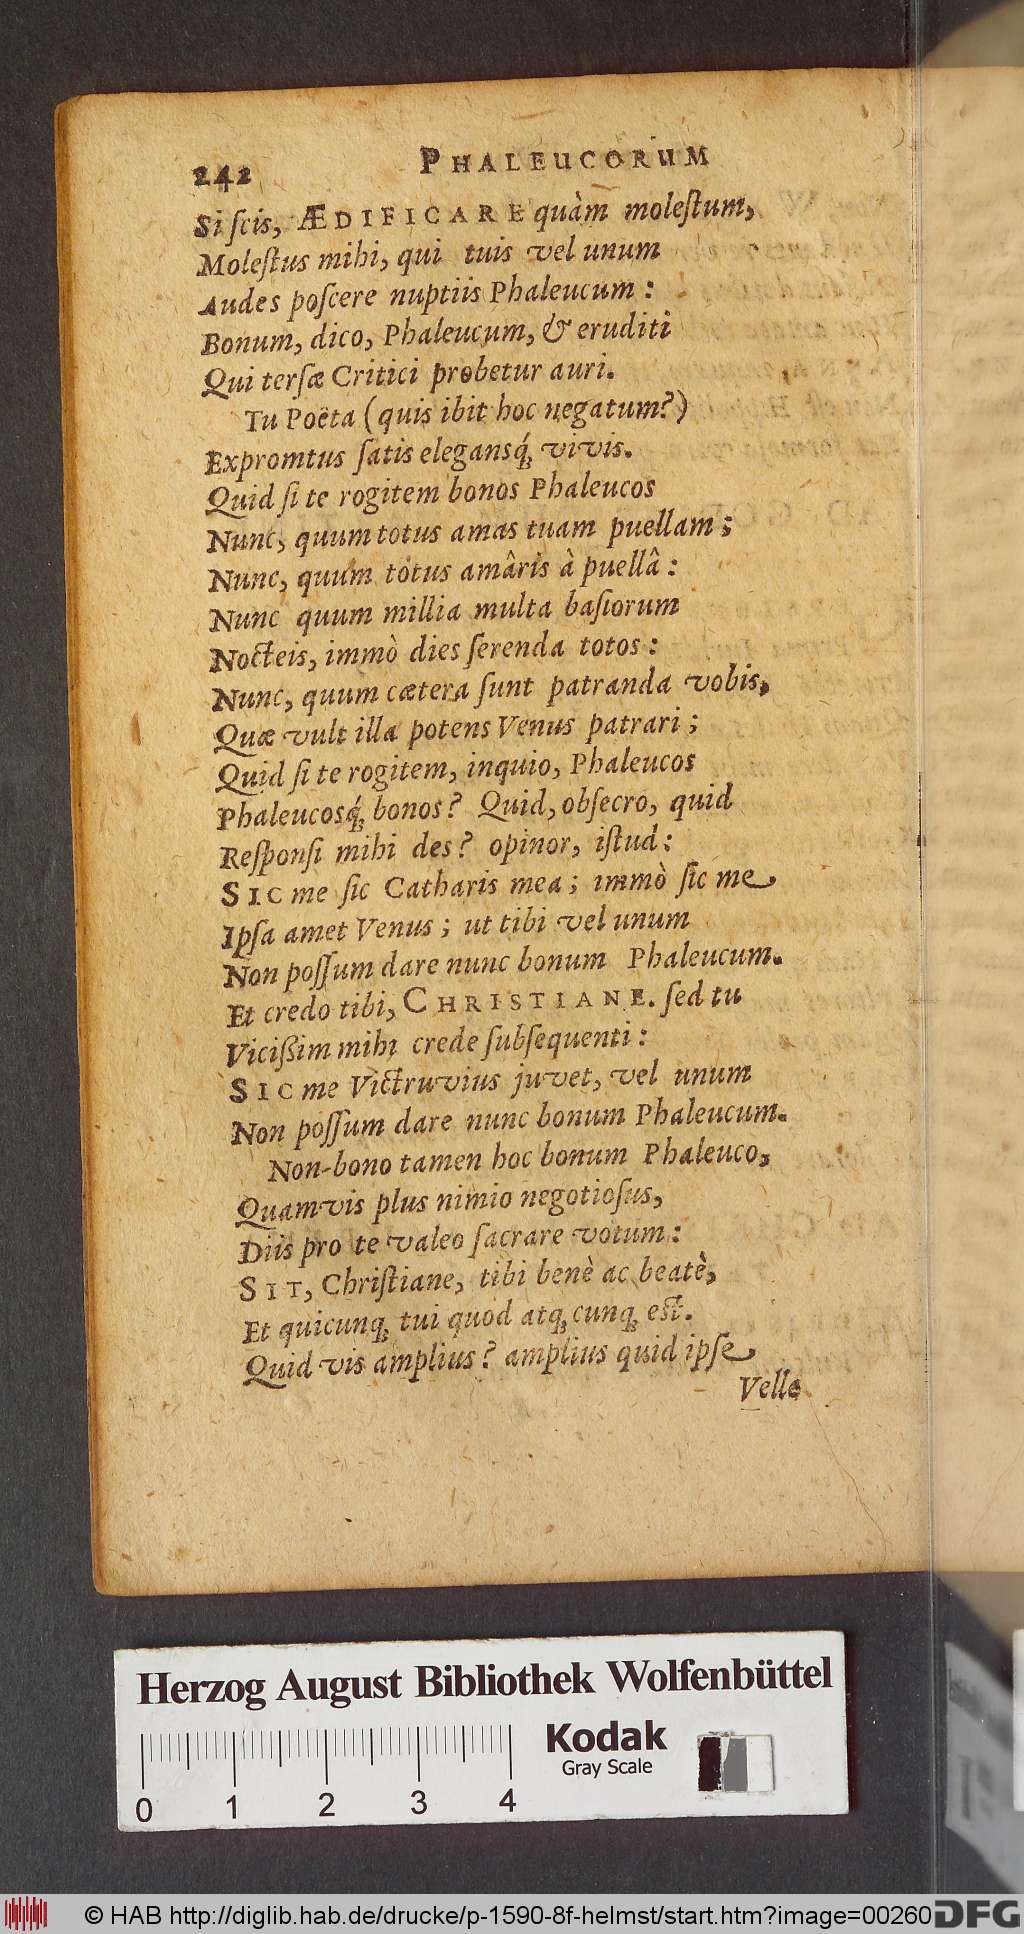 242 PHALEUCORUM
Si ſcis, ÆDIFICARE quàm moleſtum,
Moleſtus mihi, qui tuis vel unum
Audes poſcere nuptiis Phaleucum :
Bonum, dico, Phaleucum, & eruditi
Qui terſæ Critici probetur auri.
Tu Poëta (quis ibit hoc negatum?)
Expromtus ſatis elegansq́; vivis.
Quid ſi te rogitem bonos Phaleucos
Nunc, quum totus amas tuam puellam ;
Nunc, quum totus amâris à puellâ :
Nunc quum millia multa baſiorum
Nocteis, immò dies ſerenda totos :
Nunc, quum cætera ſunt patranda vobis,
Quæ vult illa potens Venus patrari ;
Quid ſi te rogitem, inquio, Phaleucos
Phaleucosq́; bonos? Quid, obſecro, quid
Reſponſi mihi des? opinor, iſtud :
SIC me ſic Catharis mea ; immò ſic me
Ipſa amet Venus ; ut tibi vel unum
Non poſſum dare nunc bonum Phaleucum.
Et credo tibi, CHRISTIANE. ſed tu
Vicißim mihi crede ſubſequenti :
SIC me Victruvius juvet, vel unum
Non poſſum dare nunc bonum Phaleucum.
Non-bono tamen hoc bonum Phaleuco,
Quamvis plus nimio negotioſus,
Diis pro te valeo ſacrare votum :
SIT, Chriſtiane, tibi benè ac beatè,
Et quicunq; tui quod atq; cunq; eſt.
Quid vis amplius? amplius quid ipſe
Velle
Herzog August Bibliothek Wolfenbüttel
Kodak
Gray Scale
0 1 2 3 4
© HAB http://diglib.hab.de/drucke/p-1590-8f-helmst/start.htm?image=00260 DFG